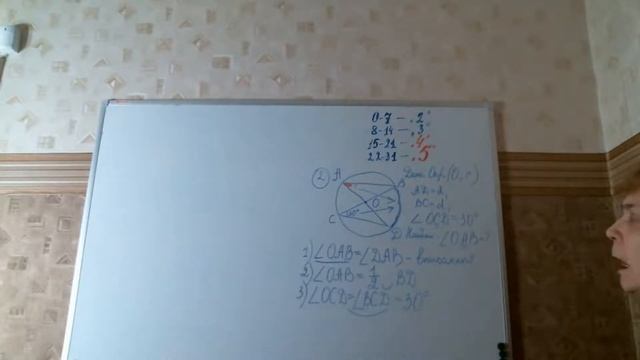 0-7 – „2"
8-14 – „3"
15-21 – „4"
22-31 – „5"
2
A
B
Дано: Окр(O, r)
AD = d,
O
BC = d
C
30°
∠OCD = 30°
D
Найти: ∠OAB = ?
1) ∠OAB = ∠DAB – вписанный
2) ∠OAB = 1/2 ◡ BD
3) ∠OCD = ∠BCD = 30°